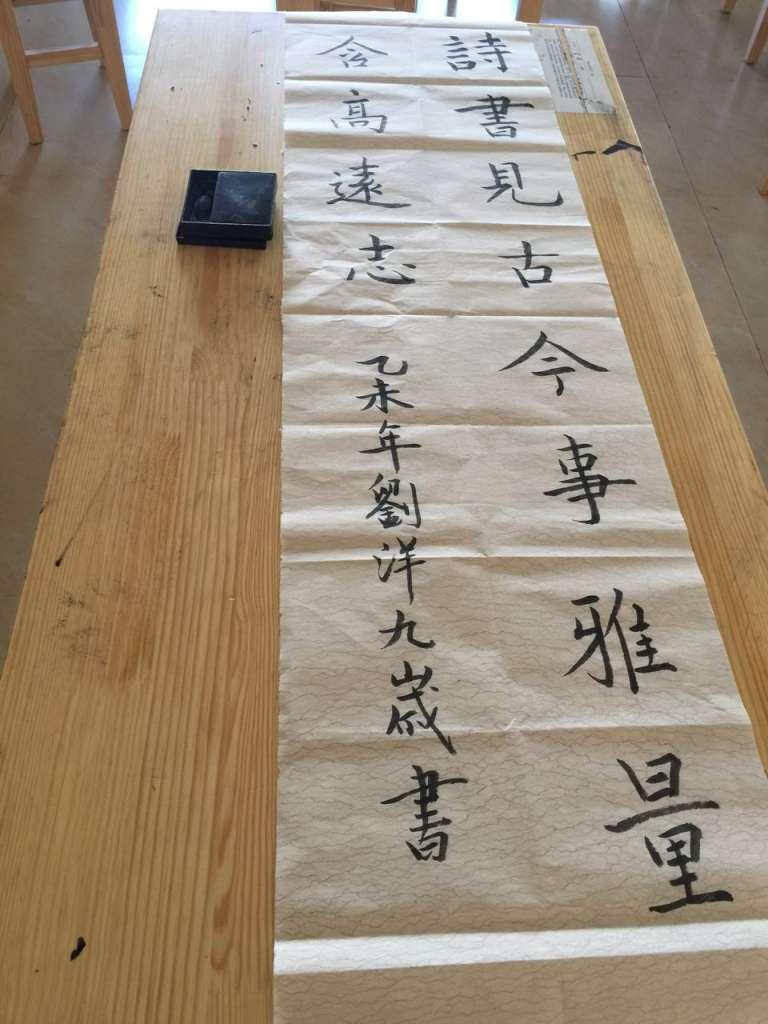 詩書見古今事雅量
含高遠志
乙未年劉洋九歲書